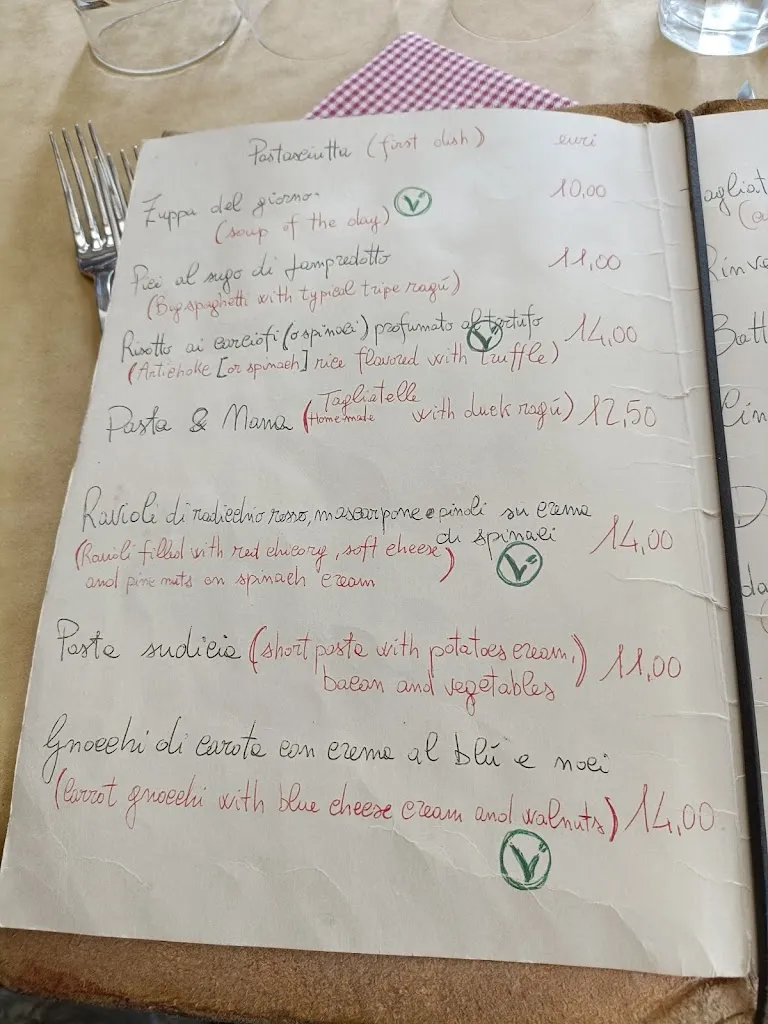 Pastasciutta (first dish) euri
Zuppa del giorno. V 10,00
(soup of the day)
Pici al sugo di lampredotto 11,00
(Big spaghetti with typical tripe ragú)
Risotto ai carciofi (o spinaci) profumato al tartufo 14,00
(Artichoke [or spinach] rice flavored with truffle) V
Pasta & Mana (Tagliatelle
Home-made with duck ragú) 12,50
Ravioli di radicchio rosso, mascarpone e pinoli su crema
di spinaci 14,00
(Ravioli filled with red chicory, soft cheese)
and pine nuts on spinach cream V
Pasta sudicia (short pasta with potatoes cream,) 11,00
bacon and vegetables
Gnocchi di carota con crema al blú e noci
(Carrot gnocchi with blue cheese cream and walnuts) 14,00
V
(a
Rinv
Batt
da